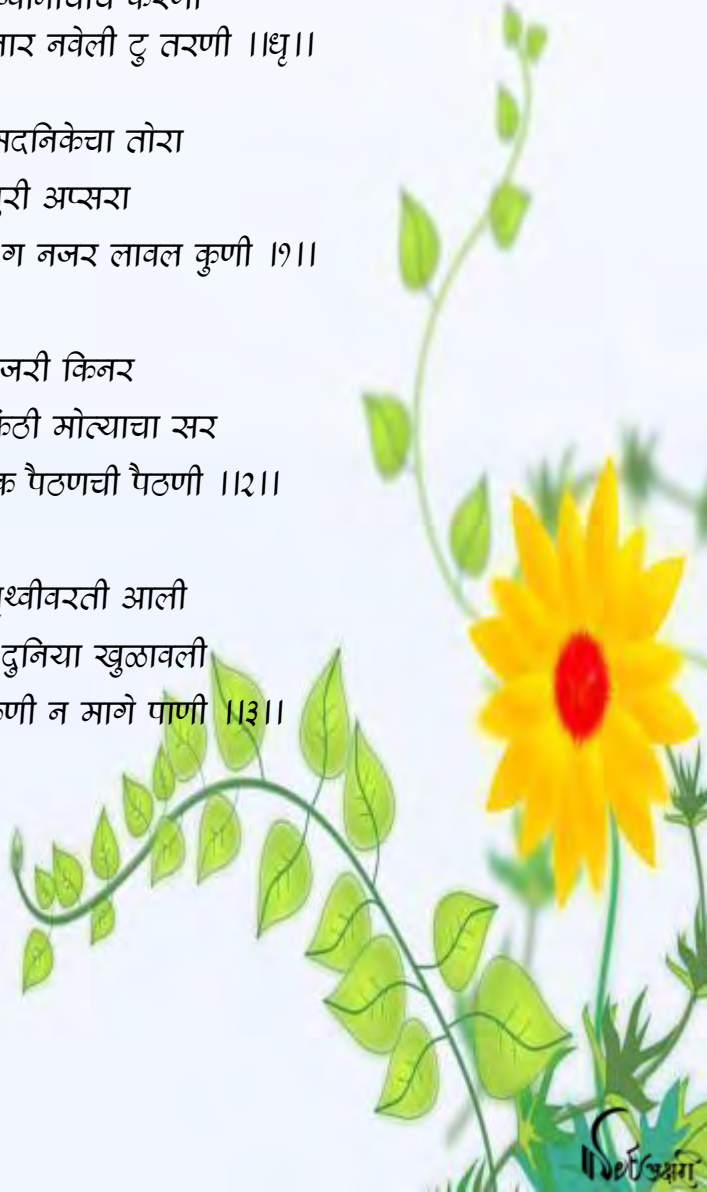 नार नवेली टु तरणी ।।धृ।।
मदनिकेचा तोरा
अप्सरा
ग नजर लावल कुणी ।१।।
जरी किनर
कंठी मोत्याचा सर
पैठणची पैठणी ।।२।।
पृथ्वीवरती आली
दुनिया खुळावली
न मागे पाणी ।।३।।